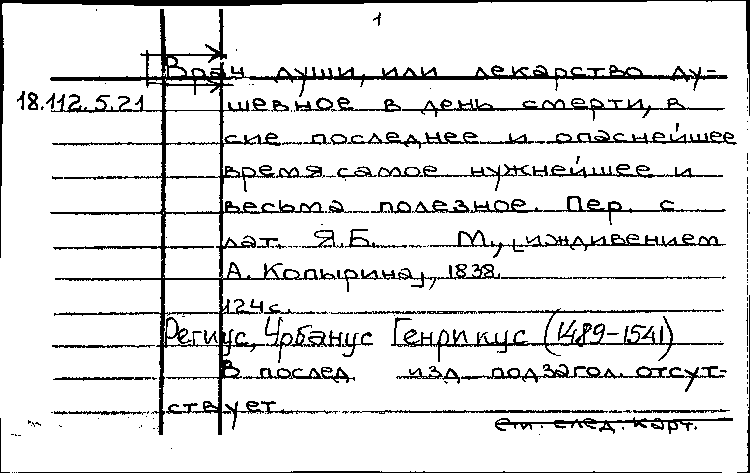 1
Врач души, или лекарство ду-
18.112.5.21 шевное в день смерти, в
сие последнее и опаснейшее
время самое нужнейшее и
весьма полезное. Пер. с
лат. Я.Б. М., [иждивением
А. Копырина], 1838.
124 с.
Региус, Урбанус Генрикус (1489-1541)
В послед. изд. подзагол. отсут-
ствует.
см. след. карт.